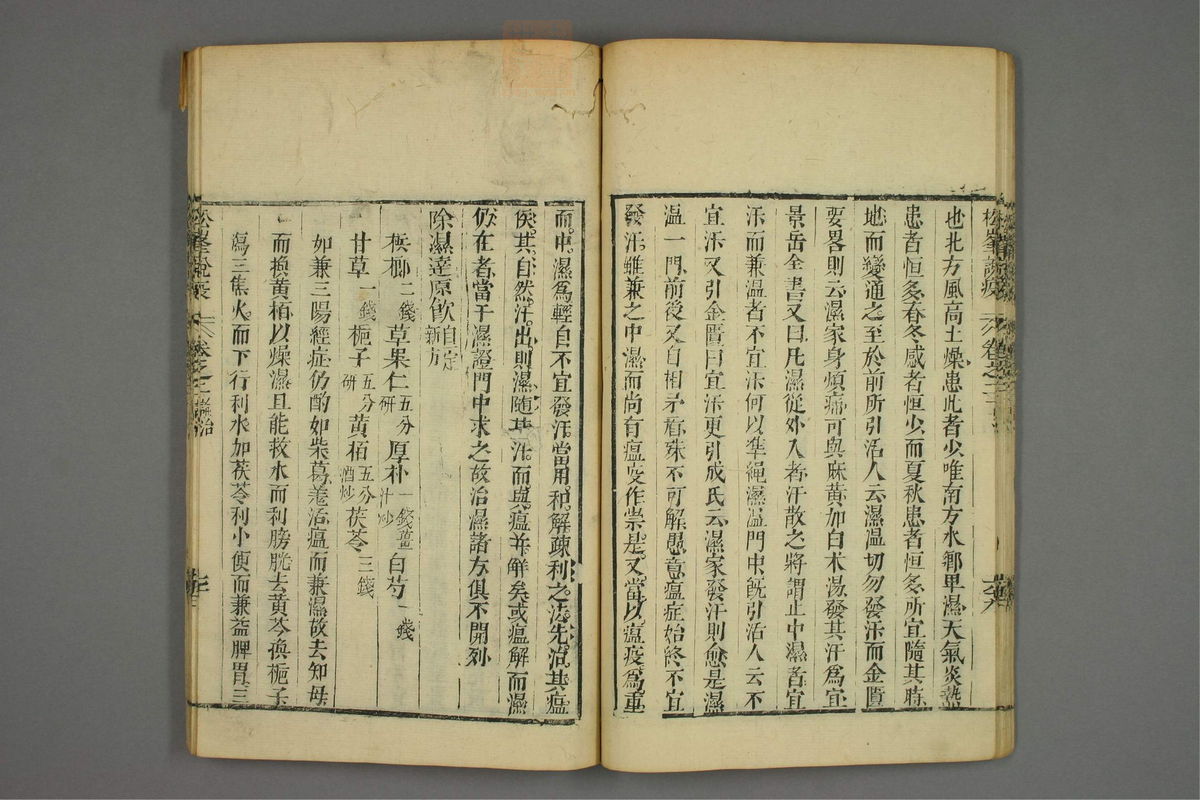 松峯說疫 卷之二
也北方風高土燥患此者少唯南方水鄉卑濕天氣炎熱
患者恒多春冬感者恒少而夏秋患者恒多所宜隨其時
地而變通之至於前所引活人云濕温切勿發汗而金匱
要畧則云濕家身煩痛可與麻黃加白术湯發其汗爲宜
景岳全書又曰凡濕從外入者汗散之將謂止中濕者宜
汗而兼温者不宜汗何以準繩濕温門中旣引活人云不
宜汗又引金匱曰宜汗更引成氏云濕家發汗則愈是濕
温一門前後又自相矛盾殊不可解愚意瘟症始終不宜
發汗雖兼之中濕而尚有瘟疫作祟是又當以瘟疫爲重
而中濕爲輕自不宜發汗當用和解疎利之法先治其瘟
俟其自然汗出則濕隨其汗而與瘟並解矣或瘟解而濕
仍在者當于濕證門中求之故治濕諸方俱不開列
除濕達原飲 自定新方
檳榔 二錢 草果仁 五分研 厚朴 一錢薑汁炒 白芍 一錢
甘草 一錢 梔子 五分研 黃栢 五分酒炒 茯苓 三錢
如兼三陽經症仍酌如柴葛羌活瘟而兼濕故去知母
而換黃栢以燥濕且能救水而利膀胱去黃芩換梔子
瀉三集火而下行利水加茯苓利小便而兼益脾胃三
松峯說疫 卷之二